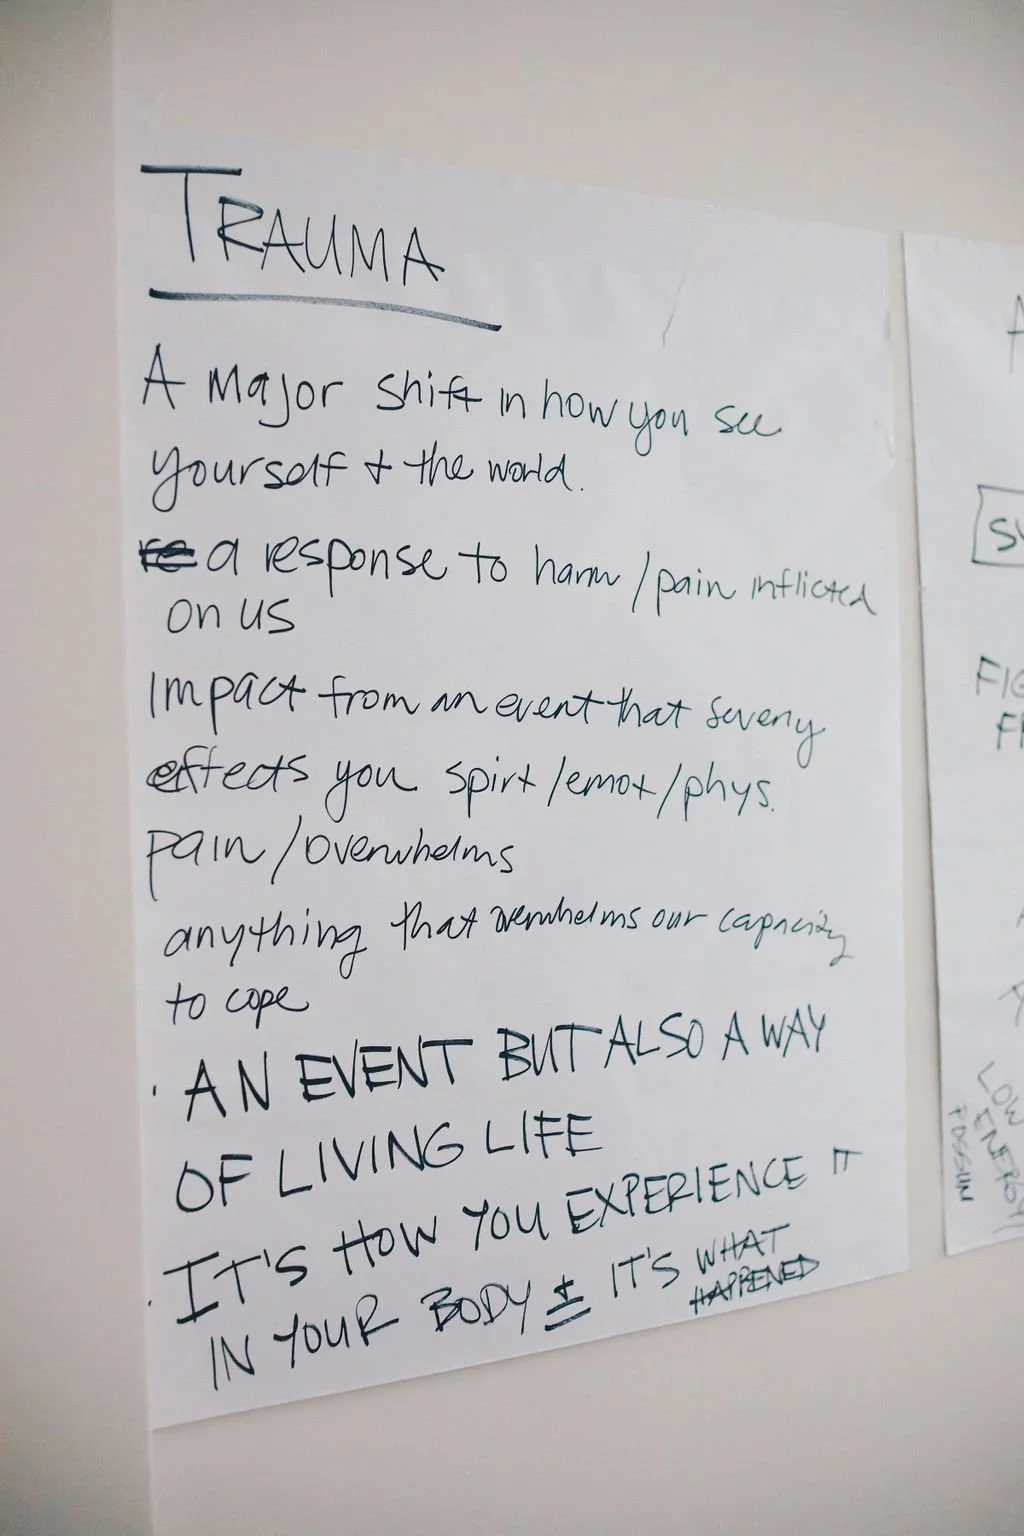 TRAUMA
A Major shift in how you see
yourself + the world.
re a response to harm / pain inflicted
on us
Impact from an event that severly
effects you spirt /emot / phys.
pain / overwhelms
anything that overwhelms our capacity
to cope
· AN EVENT BUT ALSO A WAY
OF LIVING LIFE
· IT'S HOW YOU EXPERIENCE IT
IN YOUR BODY ± IT'S WHAT
HAPPENED
LOW
ENERGY
POSSUM